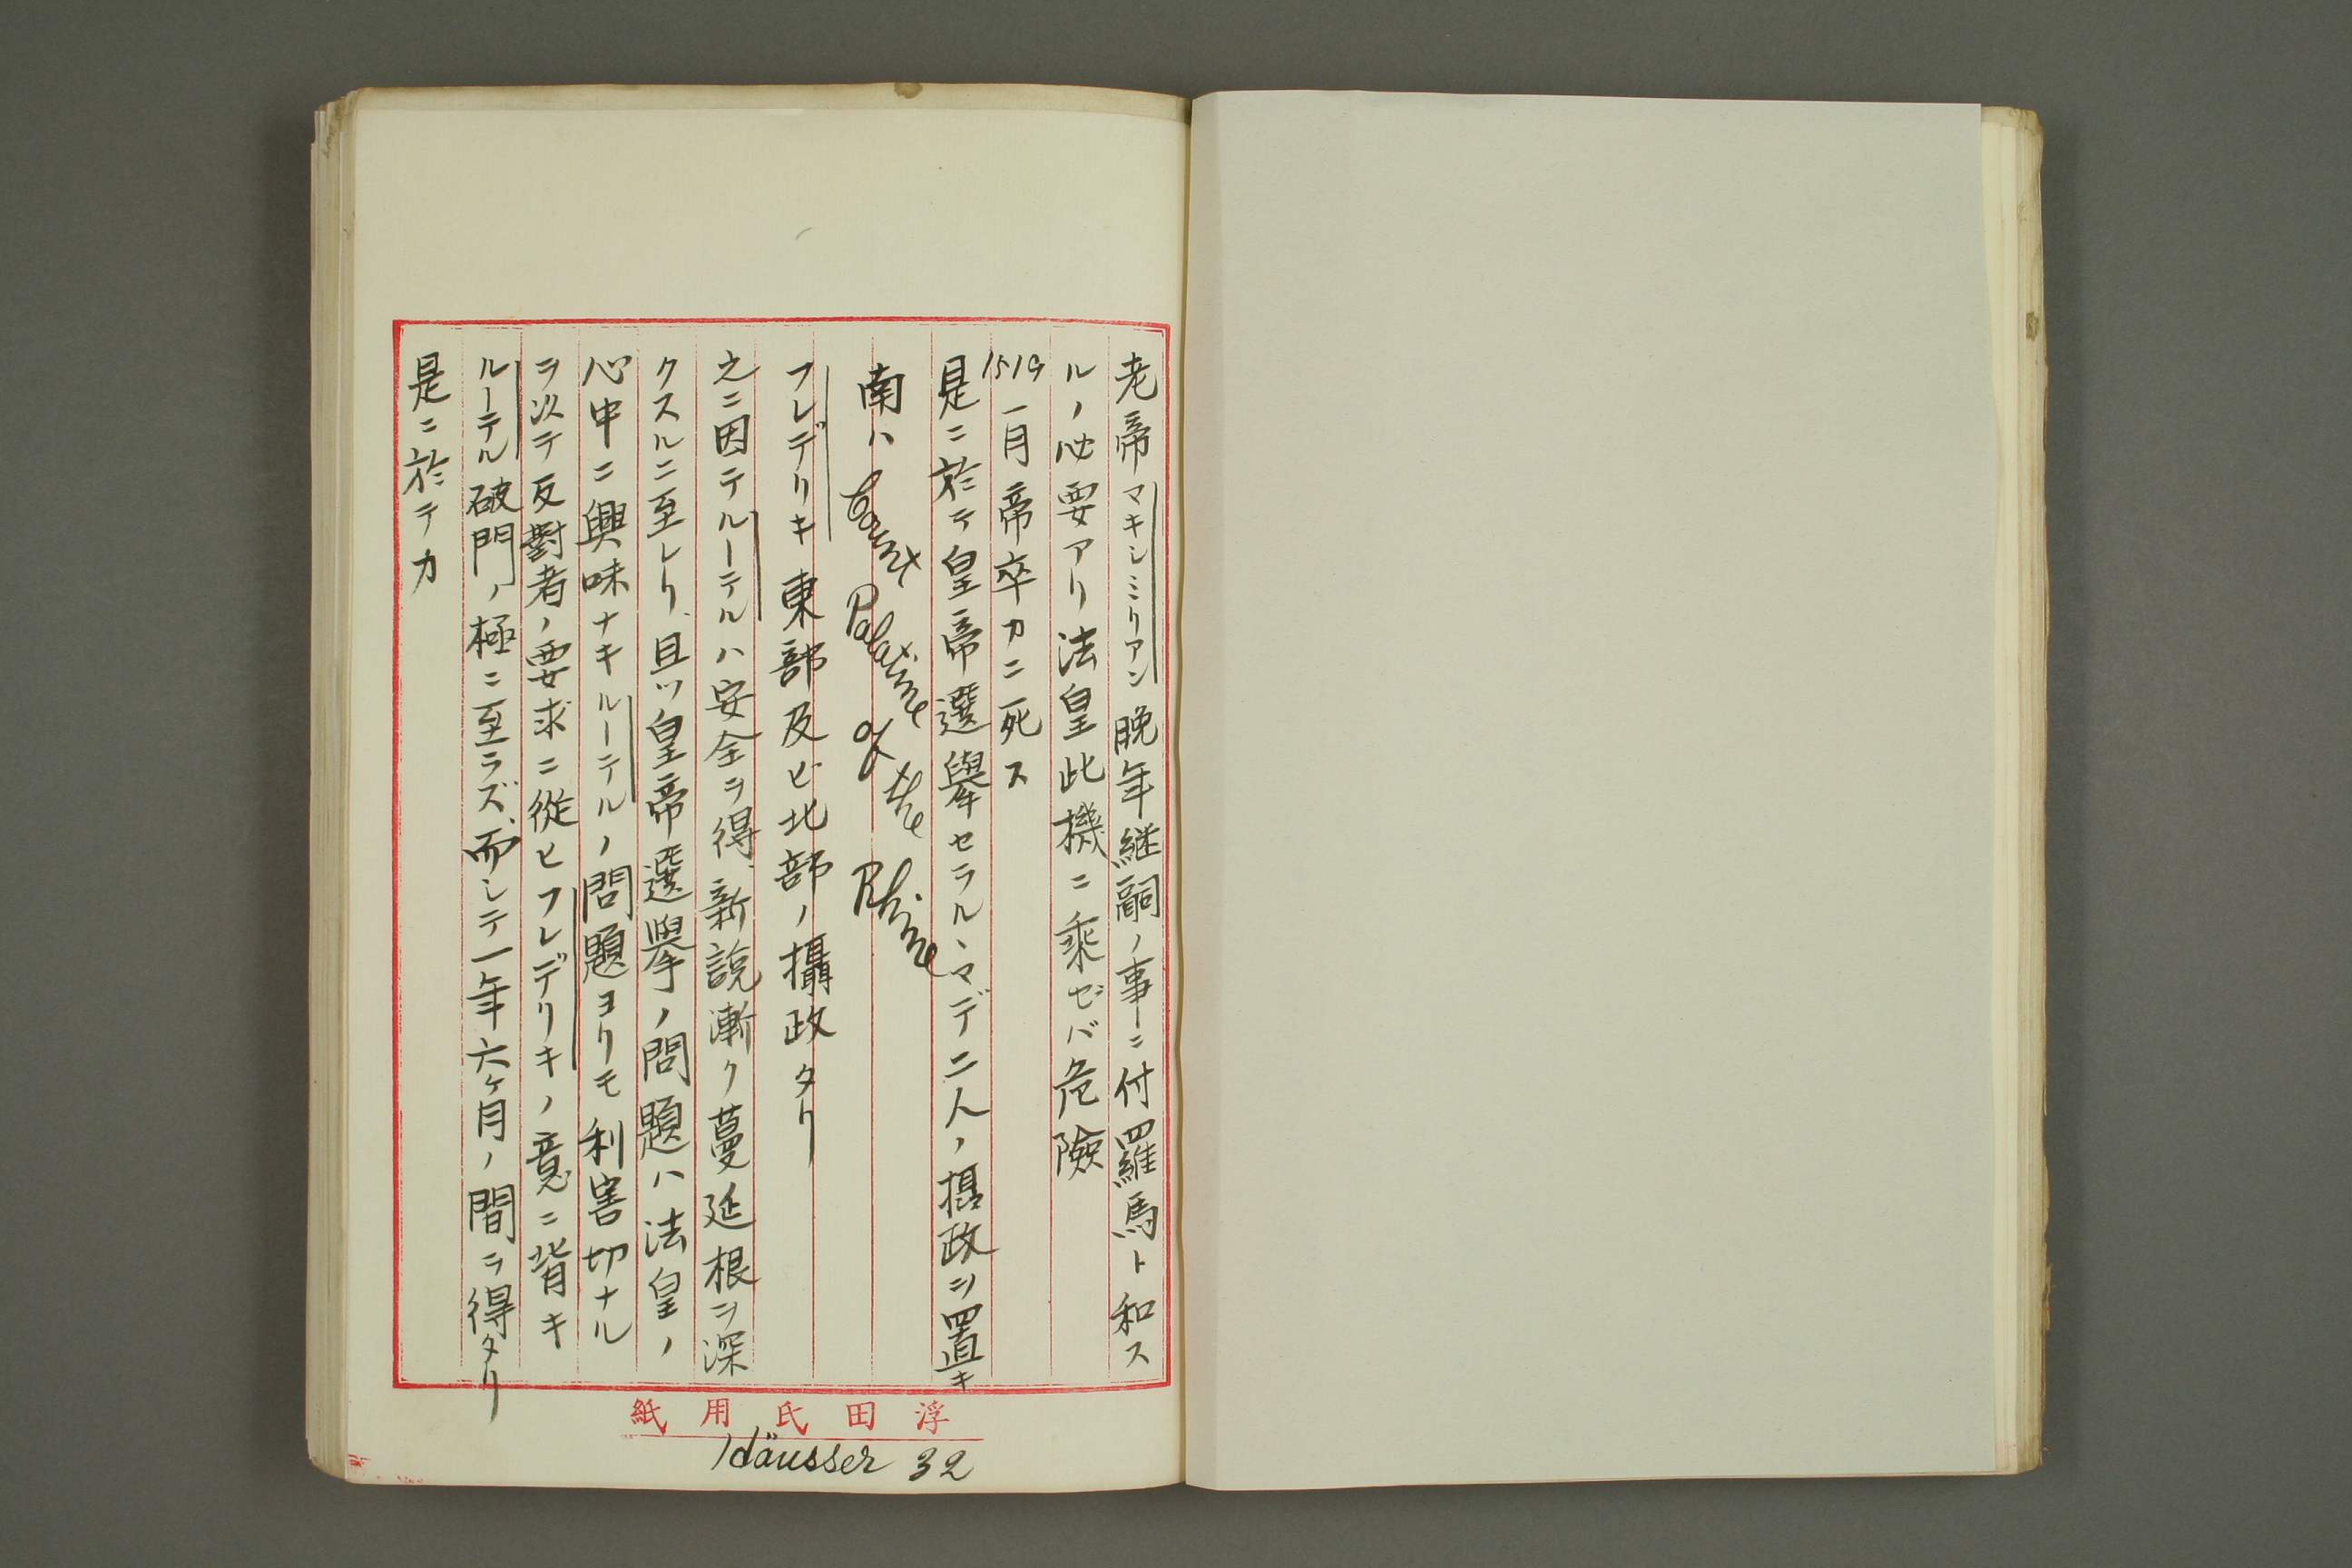 老帝マキシミリアン晩年継嗣ノ事ニ付羅馬ト和ス
ルノ必要アリ法皇此機ニ乗ゼバ危険
1519 一月帝卒カニ死ス
是ニ於テ皇帝選擧セラルヽマデ二人ノ摂政ヲ置キ
南ハ Count Palatine of the Rhine
フレデリキ東部及ビ北部ノ攝政タリ
之ニ因テルーテルハ安全ヲ得、新説漸ク蔓延根ヲ深
クスルニ至レリ、且ツ皇帝選擧ノ問題ハ法皇ノ
心中ニ興味ナキルーテルノ問題ヨリモ利害切ナル
ヲ以テ反對者ノ要求ニ從ヒフレデリキノ意ニ背キ
ルーテル破門ノ極ニ至ラズ、而シテ一年六ヶ月ノ間ヲ得タリ
是ニ於テカ
浮田氏用紙
Häusser 32